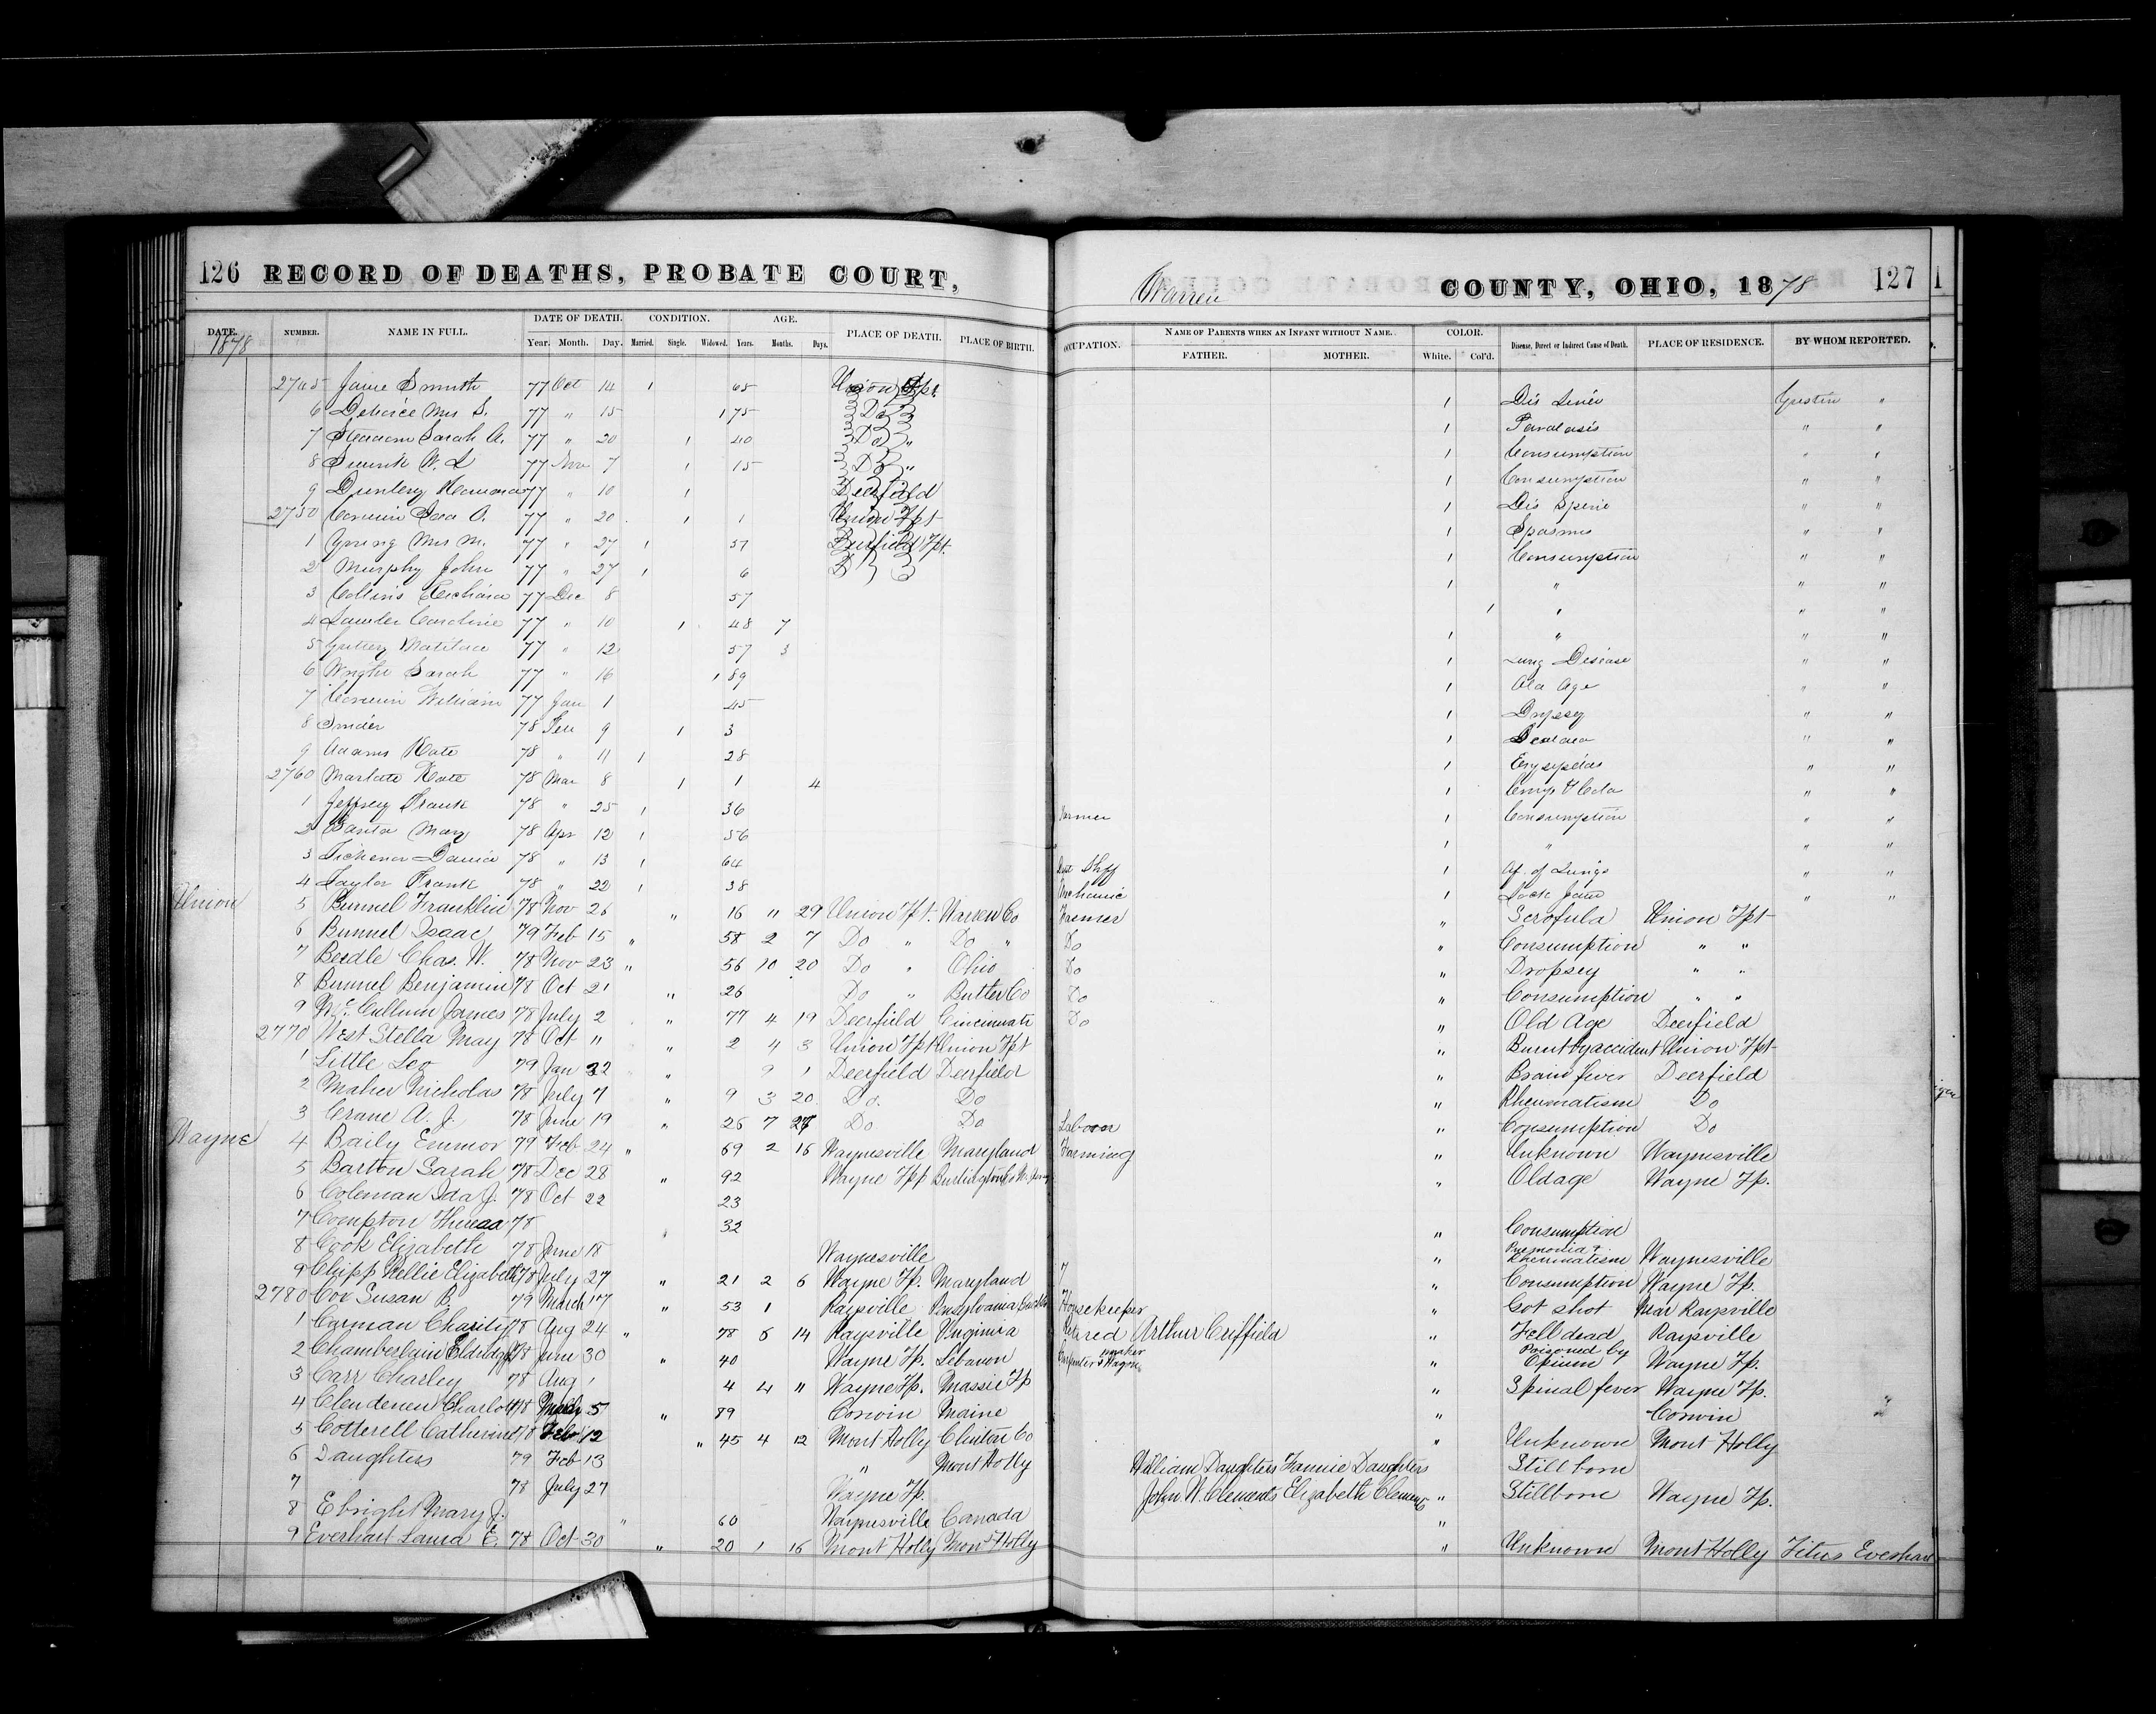 126 RECORD OF DEATHS, PROBATE COURT, Warren COUNTY, OHIO, 1878 127
DATE. NUMBER. NAME IN FULL. DATE OF DEATH. CONDITION. AGE. PLACE OF DEATH. PLACE OF BIRTH. OCCUPATION. NAME OF PARENTS WHEN AN INFANT WITHOUT NAME. COLOR. Disease, Direct or Indirect Cause of Death. PLACE OF RESIDENCE. BY WHOM REPORTED.
1878 Year. Month. Day. Married. Single. Widowed. Years. Months. Days. FATHER. MOTHER. White. Col'd.
2745 77 Oct 14 1 65 Union Tpt. 1 Dis Liver "
6 Mrs S. 77 " 15 1 75 Do 1 " "
7 Sarah A. 77 " 20 1 40 Do " 1 Consumption " "
8 77 Nov 7 1 15 Do " 1 Consumption " "
9 77 " 10 1 Deerfield 1 Dis Spine " "
2750 Corwin 77 " 20 1 1 Union Tpt 1 Spasms " "
1 Young Mrs M. 77 " 27 1 51 Deerfield Tpt. 1 Consumption " "
2 Murphy John 77 " 27 1 6 D 1 " " "
3 Collins 77 Dec 8 57 1 " " "
4 Caroline 77 " 10 1 48 7 1 " " "
5 Matilda 77 " 12 57 3 1 Lung Disease " "
6 Wright Sarah 77 " 16 1 89 1 Old Age " "
7 Corwin William 77 Jan 1 45 1 Dropsey " "
8 Snider 78 Feb 9 1 3 1 " "
9 Adams Kate 78 " 11 1 28 1 Erysipelas " "
2760 Kate 78 Mar 8 1 1 4 1 " "
1 Jeffrey Frank 78 " 25 1 36 Farmer 1 Consumption " "
2 Banta Mary 78 Apr 12 1 56 1 " " "
3 78 " 13 1 64 1 Af. of Lungs " "
4 Taylor Frank 78 " 22 1 38 Mechanic 1 Lock Jaw " "
Union 5 Bunnel Franklin 78 Nov 26 " 16 " 29 Union Tpt. Warren Co Farmer " Scrofula Union Tpt
6 Bunnel Isaac 79 Feb 15 " 58 2 7 Do " Do " Do " Consumption " "
7 Beedle Chas. W. 78 Nov 23 " 56 10 20 Do " Ohio Do " Dropsey " "
8 Bunnel Benjamin 78 Oct 21 " 26 Do " Butler Co Do " Consumption " "
9 Mc. Cullum James 78 July 2 " 77 4 19 Deerfield Cincinnati Do " Old Age Deerfield
2770 West Stella May 78 Oct " " 2 4 3 Union Tpt Union Tpt " Burnt by accident Union Tpt
1 Little Leo 79 Jan 22 " 9 1 Deerfield Deerfield " Brain fever Deerfield
2 Maher Nicholas 78 July 7 " 9 3 20 Do. Do " Rheumatism Do
3 Crane A. J. 78 June 19 " 26 7 Do Do " Consumption Do
Wayne 4 Baily Emmor 79 Feb 24 " 69 2 16 Waynesville Maryland Farming " Unknown Waynesville
5 Barton Sarah 78 Dec 28 " 92 Wayne Tpp " Oldage Wayne Tp.
6 Coleman Ida J. 78 Oct 22 23
7 Compton 78 32 " Consumption
8 Cook Elizabeth 78 June 18 Waynesville " Rheumatism Waynesville
9 Chipp Nellie Elizabeth 78 July 27 " 21 2 6 Wayne Tp. Maryland " Consumption Wayne Tp.
2780 Cox Susan B. 79 March 17 " 53 1 Raysville Housekeeper " Got shot Near Raysville
1 Carman Charity 78 Aug 24 " 78 6 14 Raysville Virginia Retired Arthur Criffield " Fell dead Raysville
2 Chamberlain Eldridge 78 June 30 " 40 Wayne Tp. Lebanon Carpenter & Wagon maker " Poisoned by Opium Wayne Tp.
3 Carr Charley 78 Aug 1 4 4 " Wayne Tp. Massie Tp " Spinal fever Wayne Tp.
4 Clendenen Charlott 78 5 " 89 Corwin Maine " Corwin
5 Cotterell Catherine 78 Feb 12 " 45 4 12 Mont Holly Clinton Co " Unknown Mont Holly
6 Daughters 79 Feb 13 " Mont Holly William Daughters Fannie Daughters Still born
7 78 July 27 Wayne Tp. John W. Clements Elizabeth Clements " Stillborn Wayne Tp.
8 Ebright Mary J. " 60 Waynesville Canada "
9 Everhart Laura E. 78 Oct 30 " 20 1 16 Mont Holly Mont Holly " Unknown Mont Holly Titus Everhart